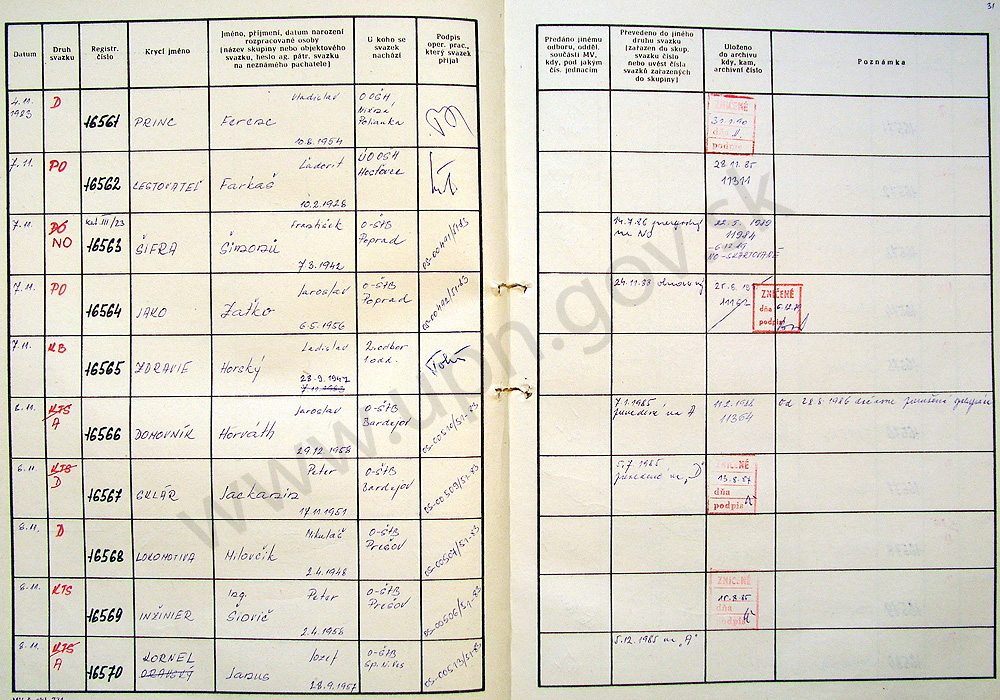 31
Datum
Druh
svazku
Registr.
číslo
Krycí jméno
Jméno, příjmení, datum narození
rozpracované osoby
(název skupiny nebo objektového
svazku, heslo ag. pátr. svazku
na neznámého pachatele)
U koho se
svazek
nachází
Podpis
oper. prac.,
který svazek
přijal
Předáno jinému
odboru, odděl.
součásti MV,
kdy, pod jakým
čís. jednacím
Převedeno do jiného
druhu svazku
(zařazen do skup.
svazku číslo
nebo uvést čísla
svazků zařazených
do skupiny)
Uloženo
do archivu
kdy, kam,
archivní číslo
Poznámka
4.11.
1983
D
16561
PRINC
Vladislav
Ferenc
10.8.1954
O OŠH
Nižná
Polianka
ZNIČENÉ
31.1.90
dňa
podpis
7.11.
PO
16562
CESTOVATEĽ
Ľudevít
Farkaš
10.2.1928
ÚO OSH
Hosťovce
28.11.85
11311
7.11.
DÔ
NO
kat. III/23
16563
ŠIFRA
František
7.3.1942
O-ŠtB
Poprad
OS-00491/S1-83
na NO
22.5.1989
11984
6.12.89
NO-SKARTOVANÉ
7.11.
PO
16564
JAKO
Jaroslav
Zaťko
6.5.1956
O-ŠtB
Poprad
OS-00492/S1-83
24.11.83
ZNIČENÉ
dňa 6.12.89
podpis
7.11.
KB
16565
ZDRAVIE
Ladislav
Horský
23.9.1947
2. odbor
1. odd.
8.11.
KTS
A
16566
DOMOVNÍK
Jaroslav
Horváth
29.12.1958
O-ŠtB
Bardejov
OS-00510/S1-83
7.1.1985
na A
11364
8.11.
KTS
D
16567
SKLÁR
Peter
Jackanin
17.11.1951
O-ŠtB
Bardejov
OS-00509/S1-83
5.7.1985
na „D"
ZNIČENÉ
13.8.87
dňa
podpis
8.11.
D
16568
LOKOMOTIVA
Mikuláš
Milovčík
2.4.1948
O-ŠtB
Prešov
OS-00507/S1-83
8.11.
KTS
16569
INŽINIER
Ing. Peter
Šiovič
2.4.1958
O-ŠtB
Prešov
OS-00506/S1-83
ZNIČENÉ
15.8.85
dňa
podpis
8.11.
KTS
A
16570
KORNEL
Jozef
Janus
28.9.1957
O-ŠtB
Sp. N. Ves
OS-00513/S1-83
5.12.1985 na „A"
www.upn.gov.sk